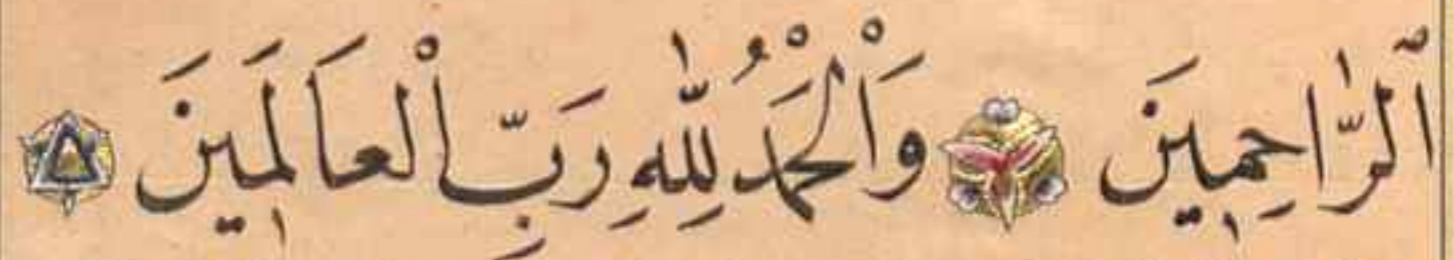 اَلرَّاحِمِينَ وَاَلْحَمْدُ لِلّٰهِ رَبِّ اَلْعَالَمِينَ